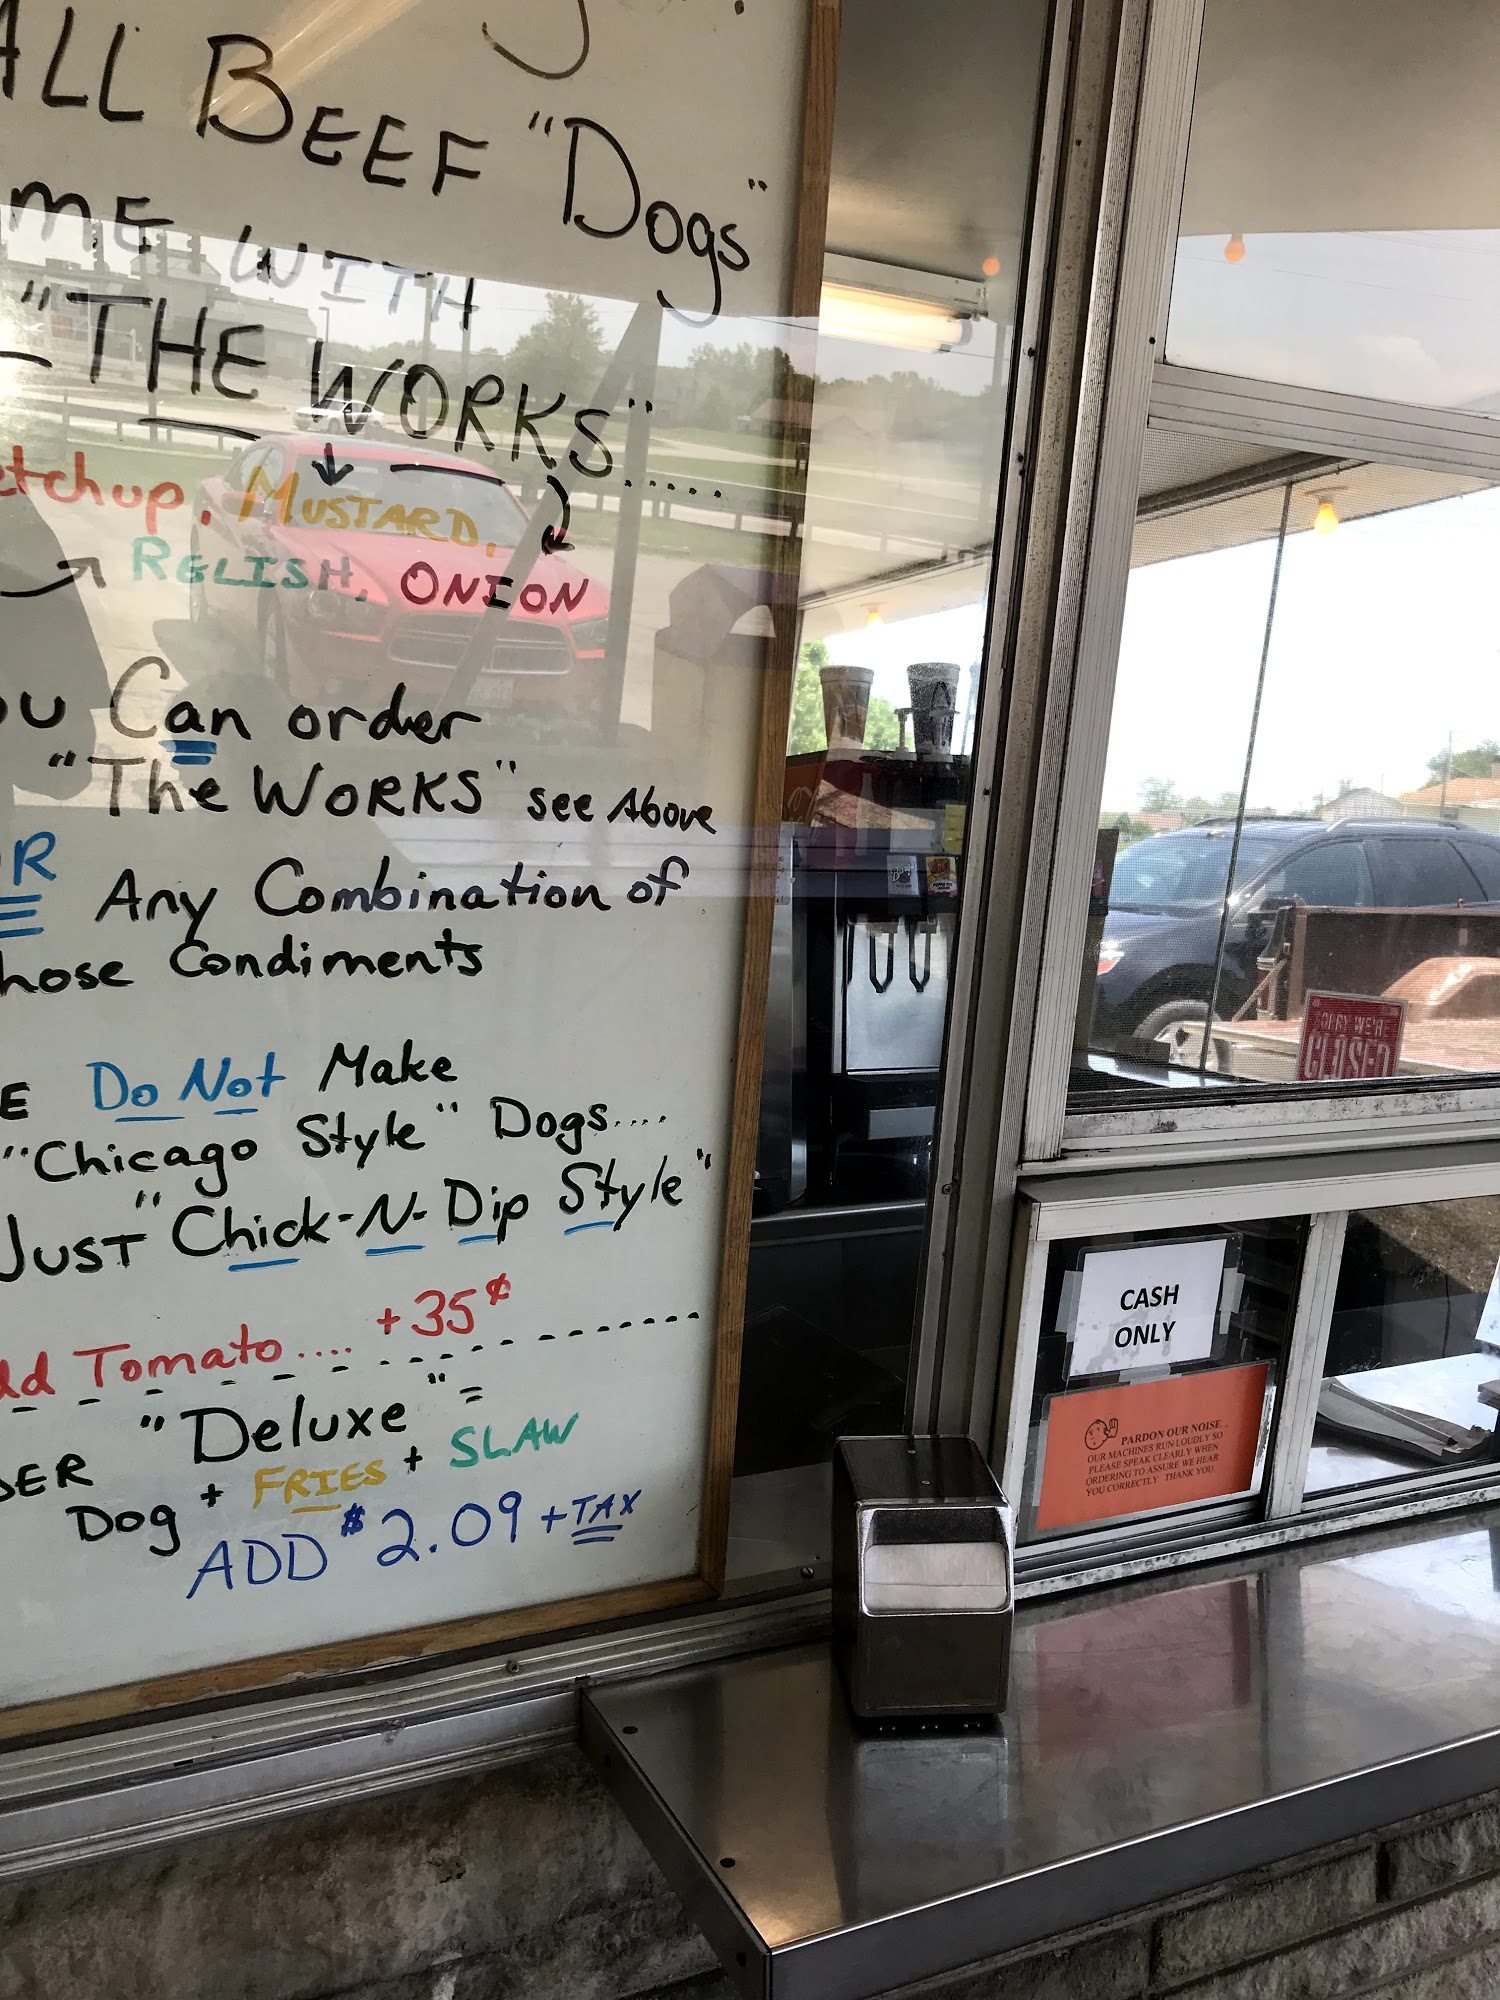 ALL BEEF "Dogs"
WITH
"THE WORKS".....
MUSTARD,
RELISH, ONION
Can order
"The WORKS" see Above
Any Combination of
Condiments
Do Not Make
"Chicago Style" Dogs....
JUST "Chick-N-Dip Style"
Tomato.... +35¢
"Deluxe" =
Dog + FRIES + SLAW
ADD $2.09 + TAX
SORRY WE'RE
CLOSED
CASH
ONLY
PARDON OUR NOISE...
OUR MACHINES RUN LOUDLY SO
PLEASE SPEAK CLEARLY WHEN
ORDERING TO ASSURE WE HEAR
YOU CORRECTLY. THANK YOU.